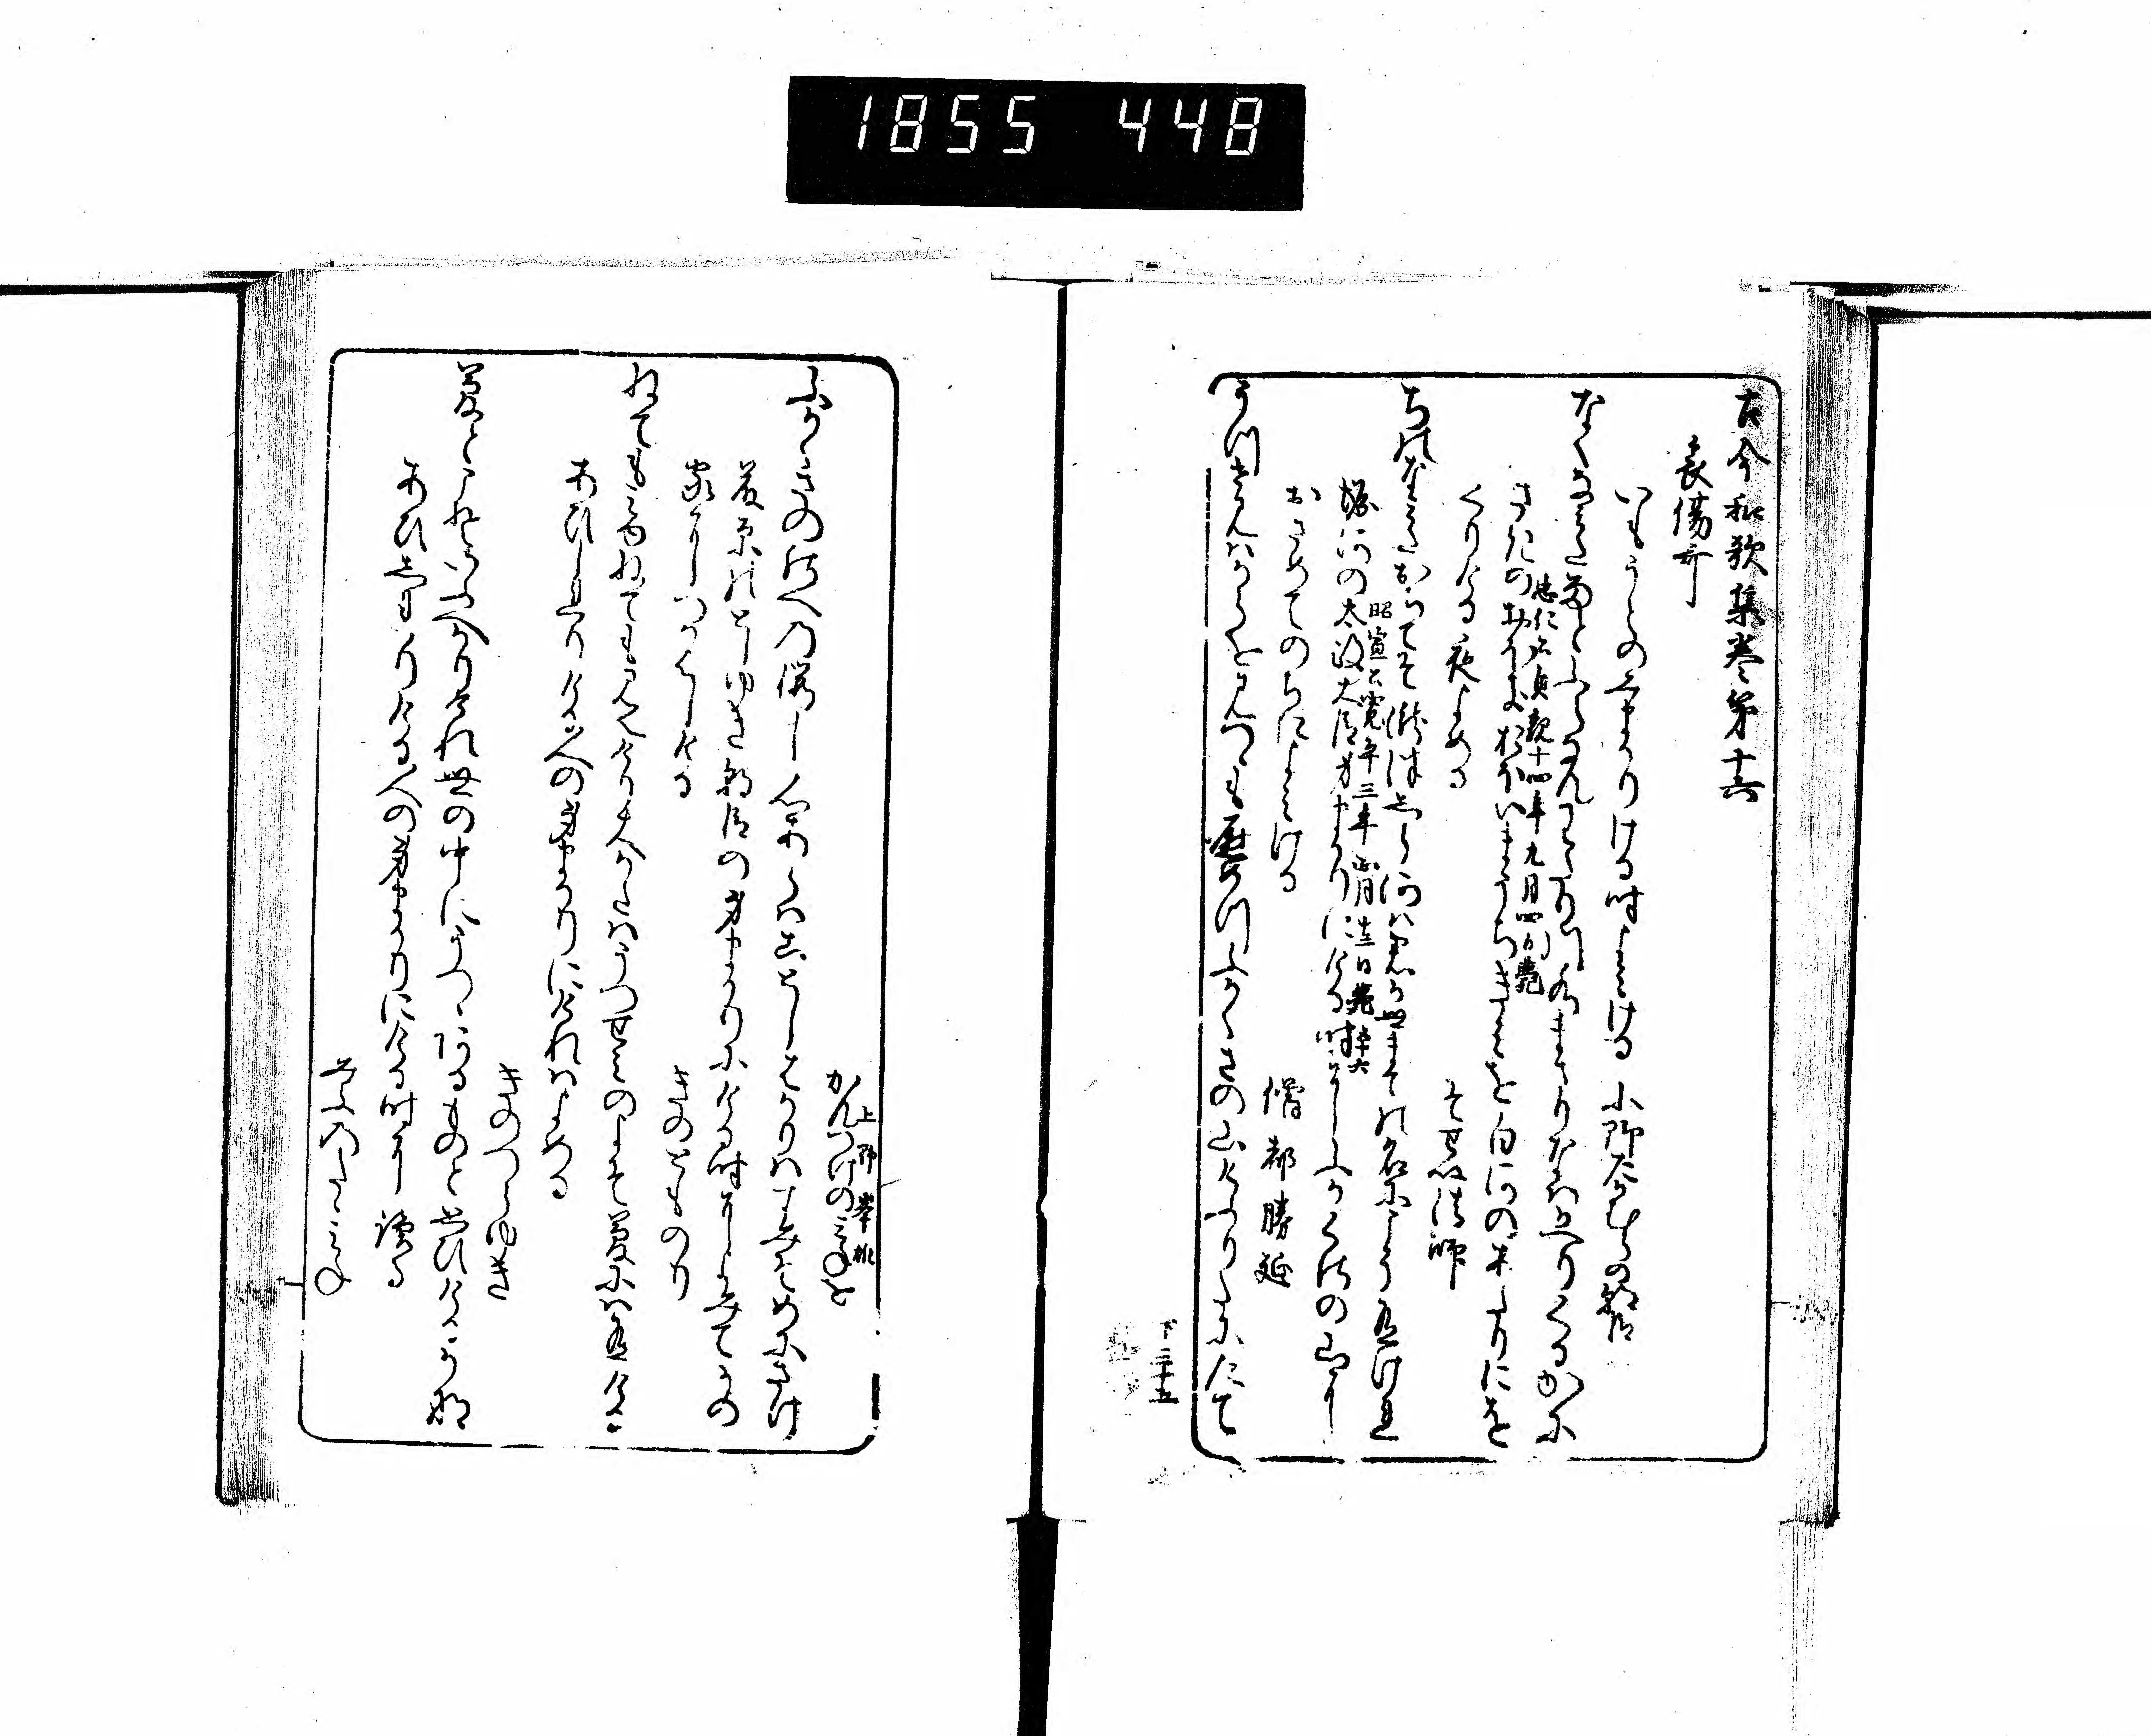 1855 448
古今和歌集巻第十六
哀傷哥
いもうとの身まかりける時よみける 小野たかむらの朝臣
なくなみた雨とふらなんわたり川水まさりなはかへりくるかに
さきのおほきおほいまうちきみを白河のあたりにを
忠仁公貞観十四年九月四日薨
くりける夜よめる
そせい法師
ちのなみたおちてそ滝つ白河は君か世まての名にこそ有けれ
堀河の太政大臣身まかりにける時にふかくさの山に
昭宣公寛平三年正月十三日薨五十六
おさめてのちによみける
僧都勝延
うつせみはからを見つつもなくさめつふかくさの山けふりたにたて
下三十五
かんつけのみねを
上野岑雄
ふかくさの野への桜し心あらはことしはかりはすみそめにさけ
藤原のとしゆき朝臣の身まかりにける時によみてかの
家につかはしける
きのとものり
ねても見ゆねてもみえけり大かたはうつせみのよそ夢には有ける
あひしれりける人の身まかりにけれはよめる
きのつらゆき
夢とこそいふへかりけれ世の中にうつつあるものと思ひけるかな
あひしれりける人の身まかりにける時に読る
みふのたたみね